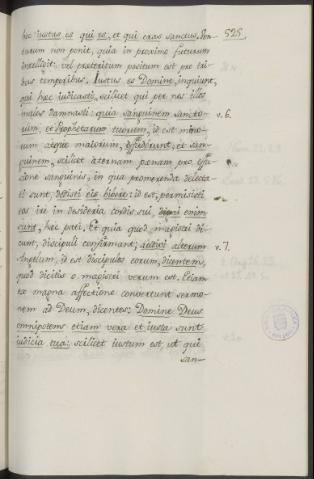 hoc iustus es qui es, et qui eras sanctus. Fu- 525.
turum non ponit, quia in proximo futurum
intelligit: vel preteritum positum est pro tri
bus temporibus. Iustus es Domine, inquiunt,
qui hæc iudicasti, scilicet qui per nos illos
malos damnasti: quia sanguinem sancto- v.6.
rum, et Prophetarum tuorum, id est mino-
rum atque maiorum, effuderunt, et san-
guinem, scilicet æternam pœnam pro effu
sione sanguinis, in qua promerenda delecta-
ti sunt, dedisti eis bibere: id est, permisisti
eos ire in desideria cordis sui, digni enim
sunt, hæc pati. Et quia quod magistri di-
cunt, discipuli confirmant; audivi alterum v.7.
Angelum, id est discipulos eorum, dicentem,
quod dicitis o magistri verum est. Etiam
ex magna affectione convertunt sermo-
nem ad Deum, dicentes: Domine Deus
omnipotens etiam vera et iusta sunt
iudicia tua: scilicet iustum est, ut qui
san-